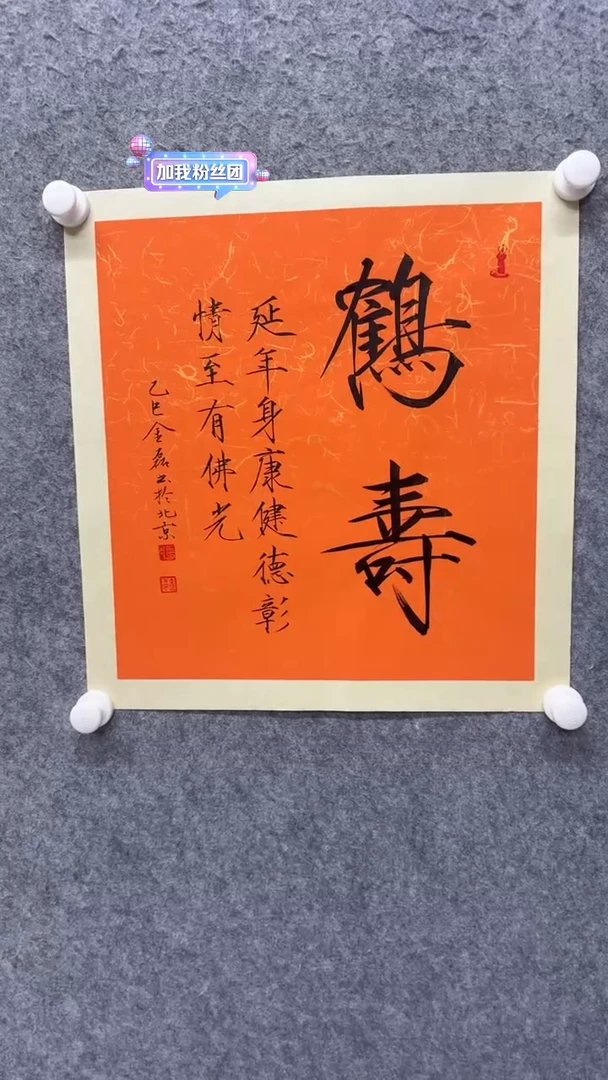 加我粉丝团
鶴壽
延年身康健德彰
情至有佛光
乙巳金磊书於北京